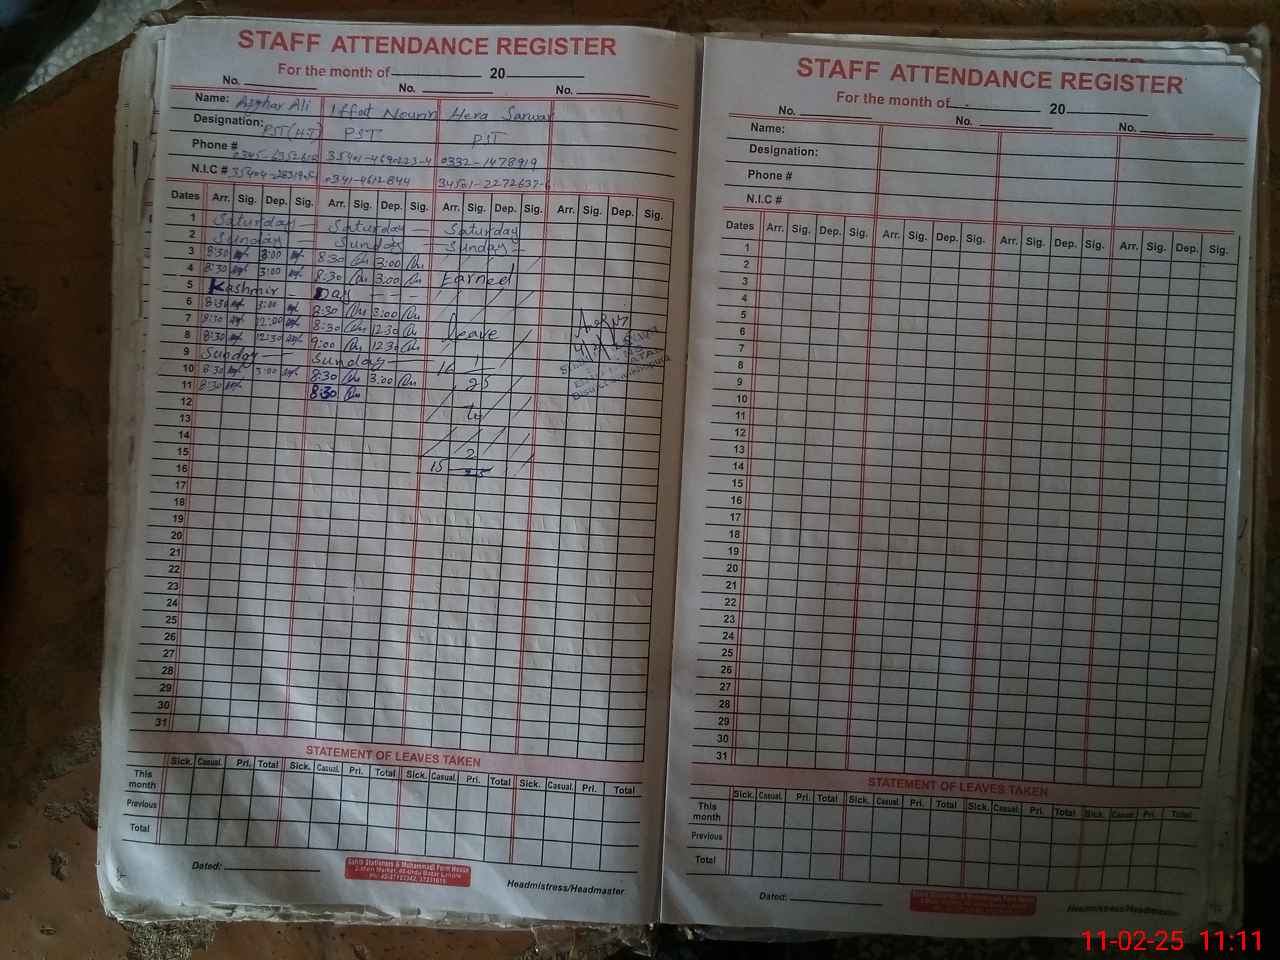 STAFF ATTENDANCE REGISTER
For the month of 20
No. No. No.
Name: Asghar Ali Iffat Nourin Hera Sarwar
Designation: PST(HT) PST PST
Phone # 35401-4690223-4 0332-1478919
N.I.C # 0341-4612844 34501-2272637-6
Dates Arr. Sig. Dep. Sig. Arr. Sig. Dep. Sig. Arr. Sig. Dep. Sig. Arr. Sig. Dep. Sig.
1 Saturday Saturday Saturday
2 Sunday Sunday Sunday
3 8:30 3:00 8:30 3:00
4 8:30 3:00 8:30 3:00 Earned
5 Kashmir Day
6 8:30 3:00 8:30 3:00
7 8:30 12:00 8:30 12:30 leave
8 8:30 12:30 9:00 12:30
9 Sunday Sunday 16 1
10 8:30 3:00 8:30 3:00 25
11 8:30 8:30
12 to
13
14
15 2
16 15 25
17
18
19
20
21
22
23
24
25
26
27
28
29
30
31
STATEMENT OF LEAVES TAKEN
Sick. Casual. Pri. Total Sick. Casual. Pri. Total Sick. Casual. Pri. Total Sick. Casual. Pri. Total
This month
Previous
Total
Dated:
Sahib Stationers & Muhammadi Form House
Headmistress/Headmaster
STAFF ATTENDANCE REGISTER
For the month of 20
No. No. No.
Name:
Designation:
Phone #
N.I.C #
Dates Arr. Sig. Dep. Sig. Arr. Sig. Dep. Sig. Arr. Sig. Dep. Sig. Arr. Sig. Dep. Sig.
1
2
3
4
5
6
7
8
9
10
11
12
13
14
15
16
17
18
19
20
21
22
23
24
25
26
27
28
29
30
31
STATEMENT OF LEAVES TAKEN
Sick. Casual. Pri. Total Sick. Casual. Pri. Total Sick. Casual. Pri. Total Sick. Casual. Pri. Total
This month
Previous
Total
Dated:
Headmistress/Headmaster
11-02-25 11:11